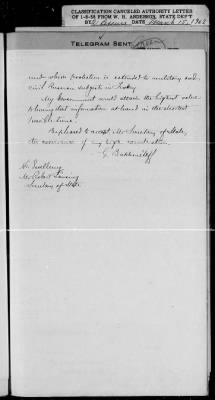 CLASSIFICATION CANCELED AUTHORITY LETTER
OF 1-8-58 FROM W. H. ANDERSON, STATE DEP'T
BY DATE March 15, 1962
TELEGRAM SENT.
under whose protection is extended to military and
civil Russian subjects in Turkey.
My Government would attach the highest value
to having that information at hand in the shortest
possible time.
Be pleased to accept, Mr Secretary of State,
the assurance of my high consideration.
G. Bakhmeteff
His Excellency
Mr Robert Lansing
Secretary of State